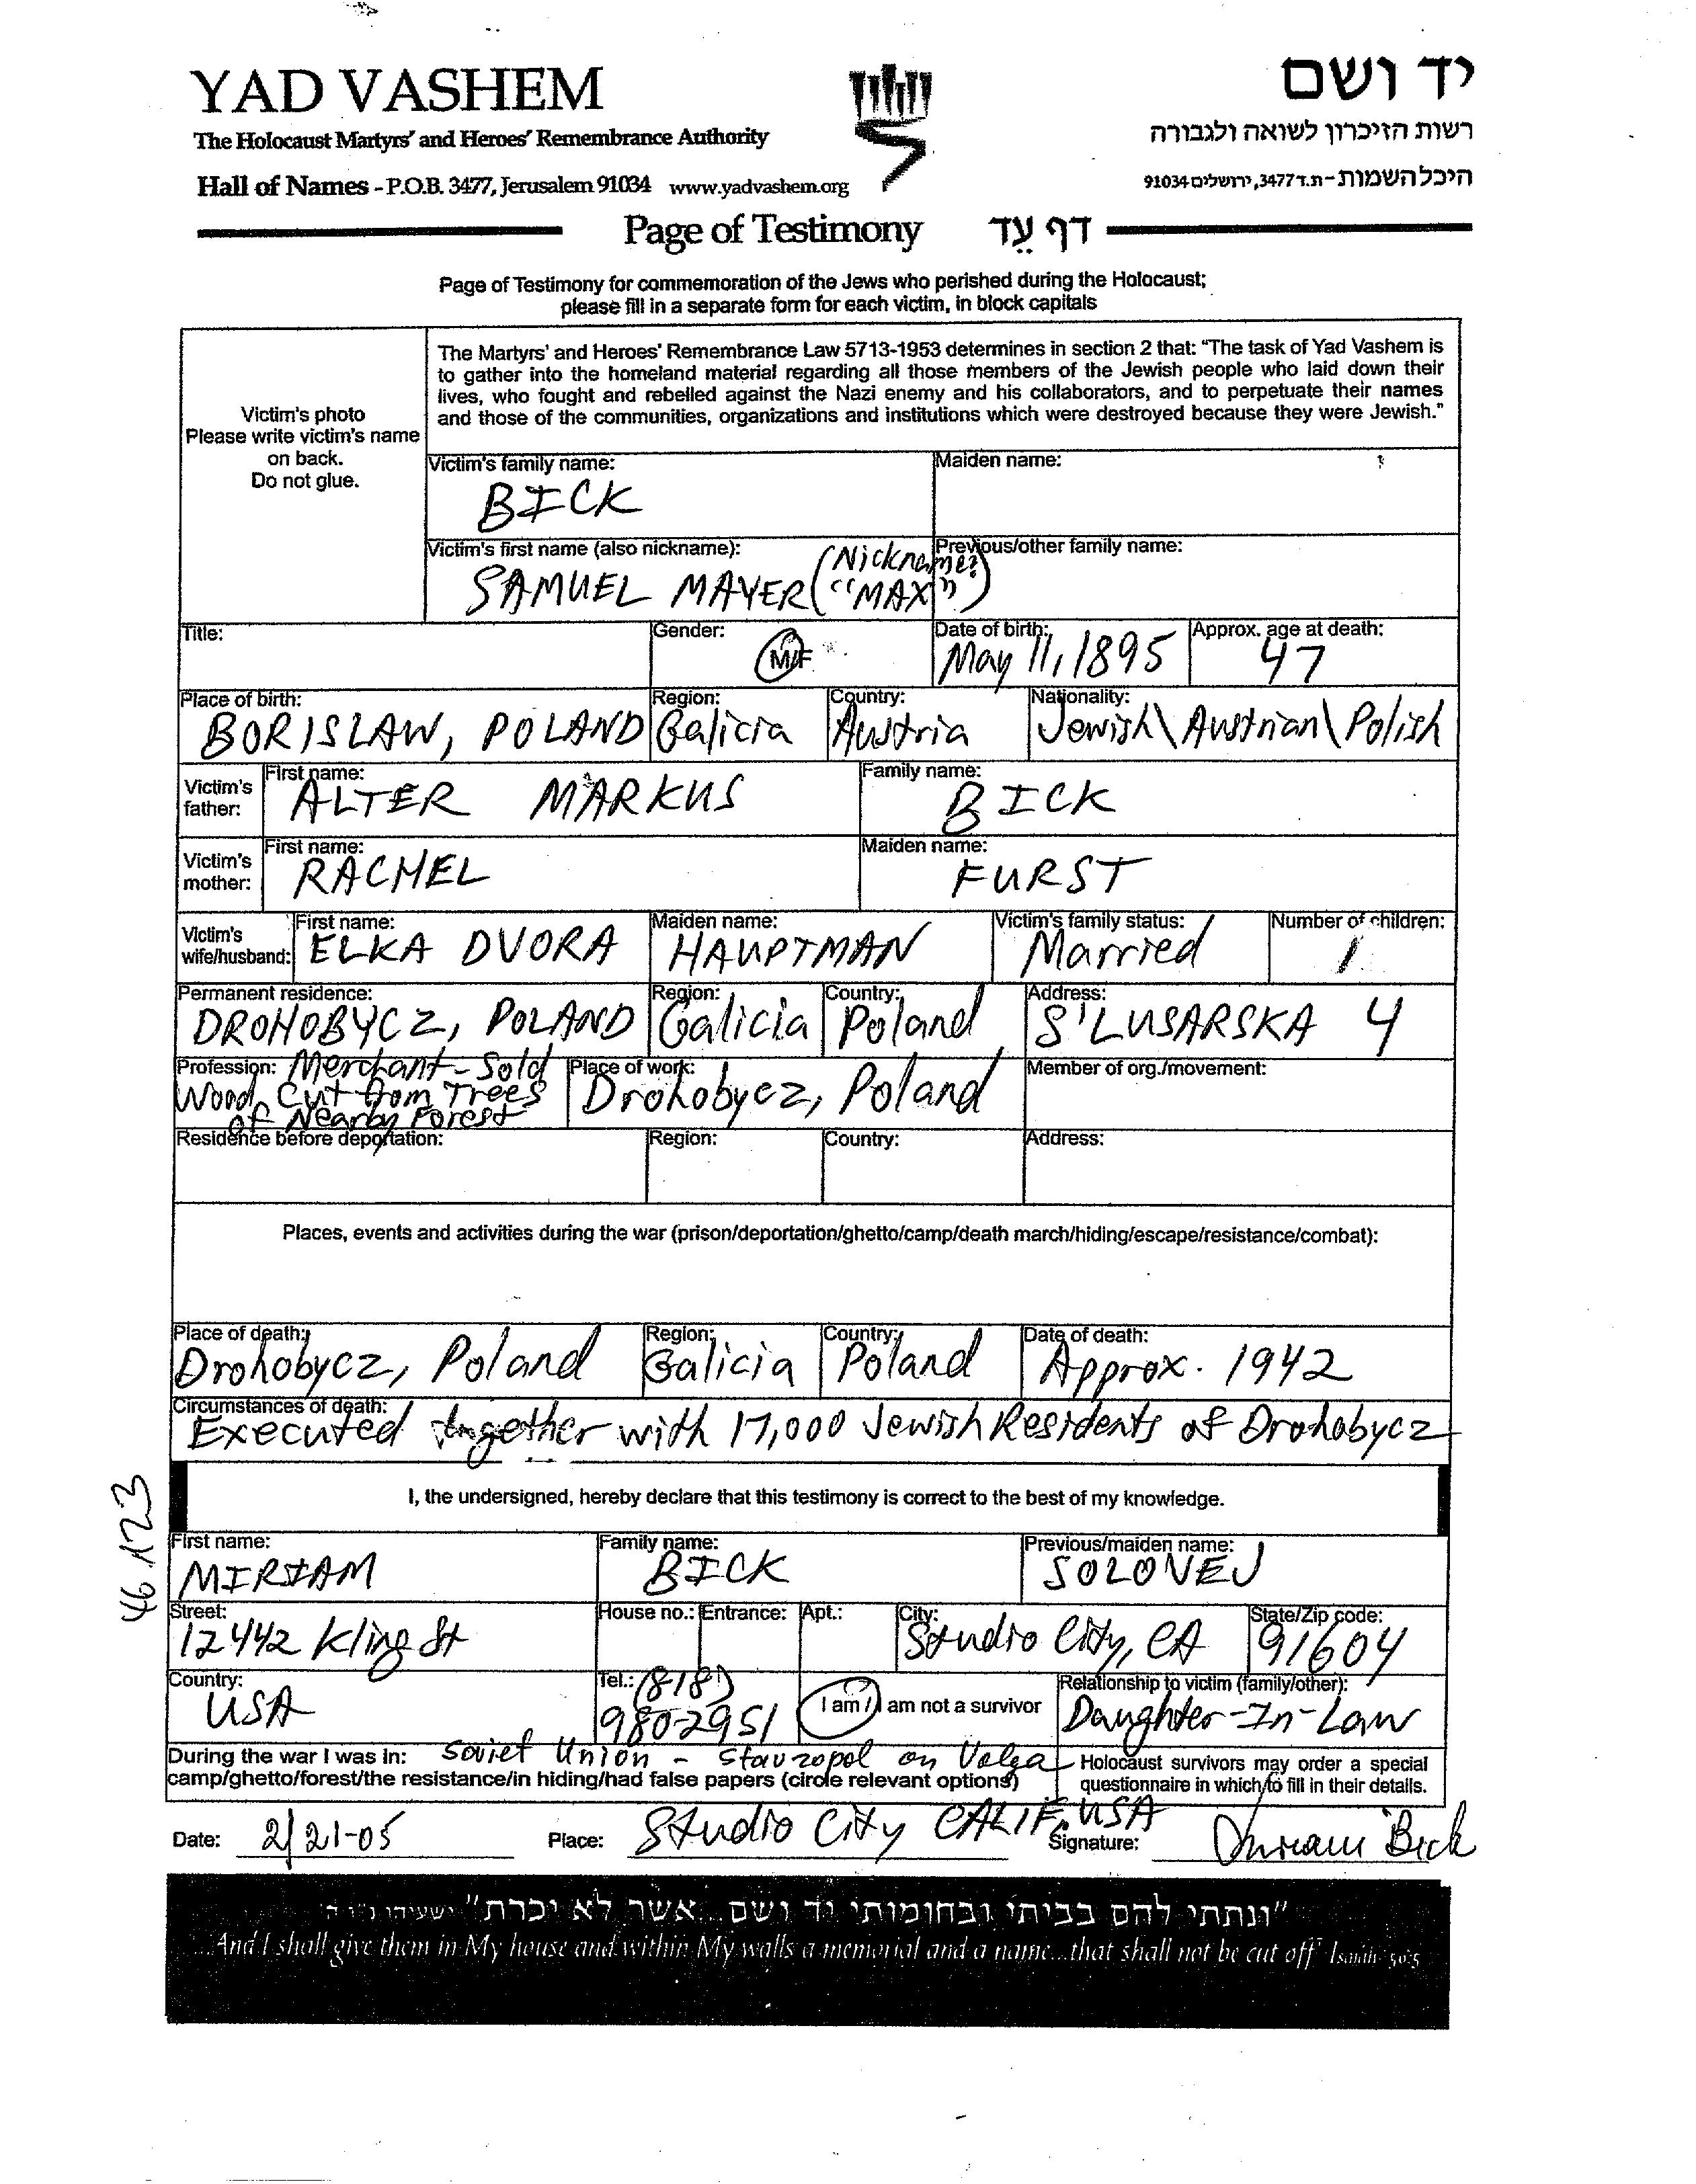 YAD VASHEM
יד ושם
The Holocaust Martyrs' and Heroes' Remembrance Authority
רשות הזיכרון לשואה ולגבורה
Hall of Names - P.O.B. 3477, Jerusalem 91034 www.yadvashem.org
היכל השמות - ת.ד 3477, ירושלים 91034
Page of Testimony דף עֵד
Page of Testimony for commemoration of the Jews who perished during the Holocaust;
please fill in a separate form for each victim, in block capitals
Victim's photo
Please write victim's name
on back.
Do not glue.
The Martyrs' and Heroes' Remembrance Law 5713-1953 determines in section 2 that: "The task of Yad Vashem is
to gather into the homeland material regarding all those members of the Jewish people who laid down their
lives, who fought and rebelled against the Nazi enemy and his collaborators, and to perpetuate their names
and those of the communities, organizations and institutions which were destroyed because they were Jewish."
Victim's family name: Maiden name:
BICK
Victim's first name (also nickname): Previous/other family name:
SAMUEL MAYER (Nickname: "MAX")
Title: Gender: Date of birth: Approx. age at death:
M/F May 11, 1895 47
Place of birth: Region: Country: Nationality:
BORISLAW, POLAND Galicia Austria Jewish\Austrian\Polish
Victim's father: First name: Family name:
ALTER MARKUS BICK
Victim's mother: First name: Maiden name:
RACHEL FURST
Victim's wife/husband: First name: Maiden name: Victim's family status: Number of children:
ELKA DVORA HAUPTMAN Married 1
Permanent residence: Region: Country: Address:
DROHOBYCZ, POLAND Galicia Poland S'LUSARSKA 4
Profession: Merchant - Sold Place of work: Member of org./movement:
Wood Cut from Trees Drohobycz, Poland
of Nearby Forest
Residence before deportation: Region: Country: Address:
Places, events and activities during the war (prison/deportation/ghetto/camp/death march/hiding/escape/resistance/combat):
Place of death: Region: Country: Date of death:
Drohobycz, Poland Galicia Poland Approx. 1942
Circumstances of death:
Executed together with 17,000 Jewish Residents of Drohobycz
I, the undersigned, hereby declare that this testimony is correct to the best of my knowledge.
46 123
First name: Family name: Previous/maiden name:
MIRIAM BICK SOLOVEJ
Street: House no.: Entrance: Apt.: City: State/Zip code:
12442 Kling St Studio City, CA 91604
Country: Tel.: (818) Relationship to victim (family/other):
USA 980-2951 I am / am not a survivor Daughter-In-Law
During the war I was in: Soviet Union - Stavropol on Volga
camp/ghetto/forest/the resistance/in hiding/had false papers (circle relevant options)
Holocaust survivors may order a special
questionnaire in which to fill in their details.
Date: 2/21-05 Place: Studio City CALIF. USA Signature: Miriam Bick
"ונתתי להם בביתי ובחומותי יד ושם...אשר לא יכרת" ישעיהו נ"ו ה
...And I shall give them in My house and within My walls a memorial and a name...that shall not be cut off" Isaiah 56:5